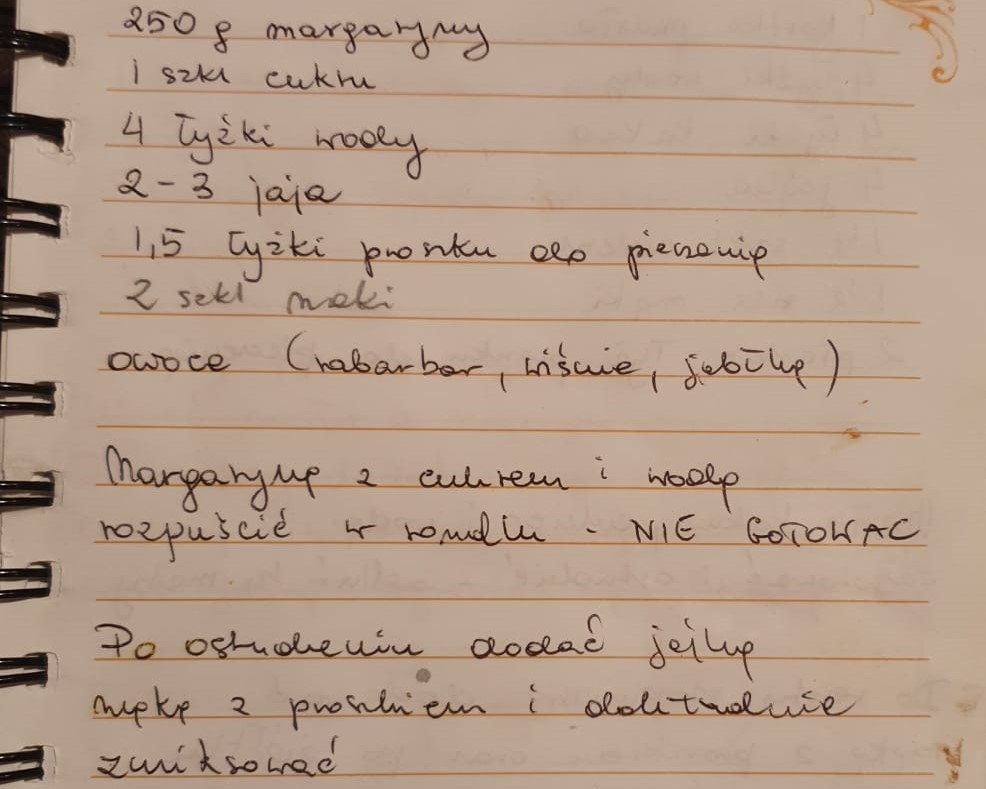 250 g margaryny
1 szkl cukru
4 łyżki wody
2-3 jaja
1,5 łyżki proszku do pieczenia
2 szkl mąki
owoce (rabarbar, wiśnie, jabłka)
Margarynę z cukrem i wodą
rozpuścić w rondlu - NIE GOTOWAĆ
Po ostudzeniu dodać jajka
mąkę z proszkiem i dokładnie
zmiksować